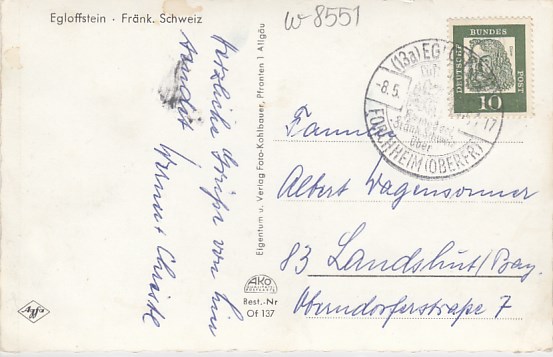 Egloffstein · Fränk. Schweiz
w-8551
herzliche Grüße von hier
sendet
Werner + Christl
Eigentum u. Verlag Foto-Kohlbauer, Pfronten 1 Allgäu
AKO
Best.-Nr
Of 137
Agfa
DEUTSCHE
BUNDES
POST
10
(13a) EG
-8.5.
17
über
FORCHHEIM (OBERFR)
Familie
Albert Wagensonner
83 Landshut/Bay.
Oberndorferstraße 7